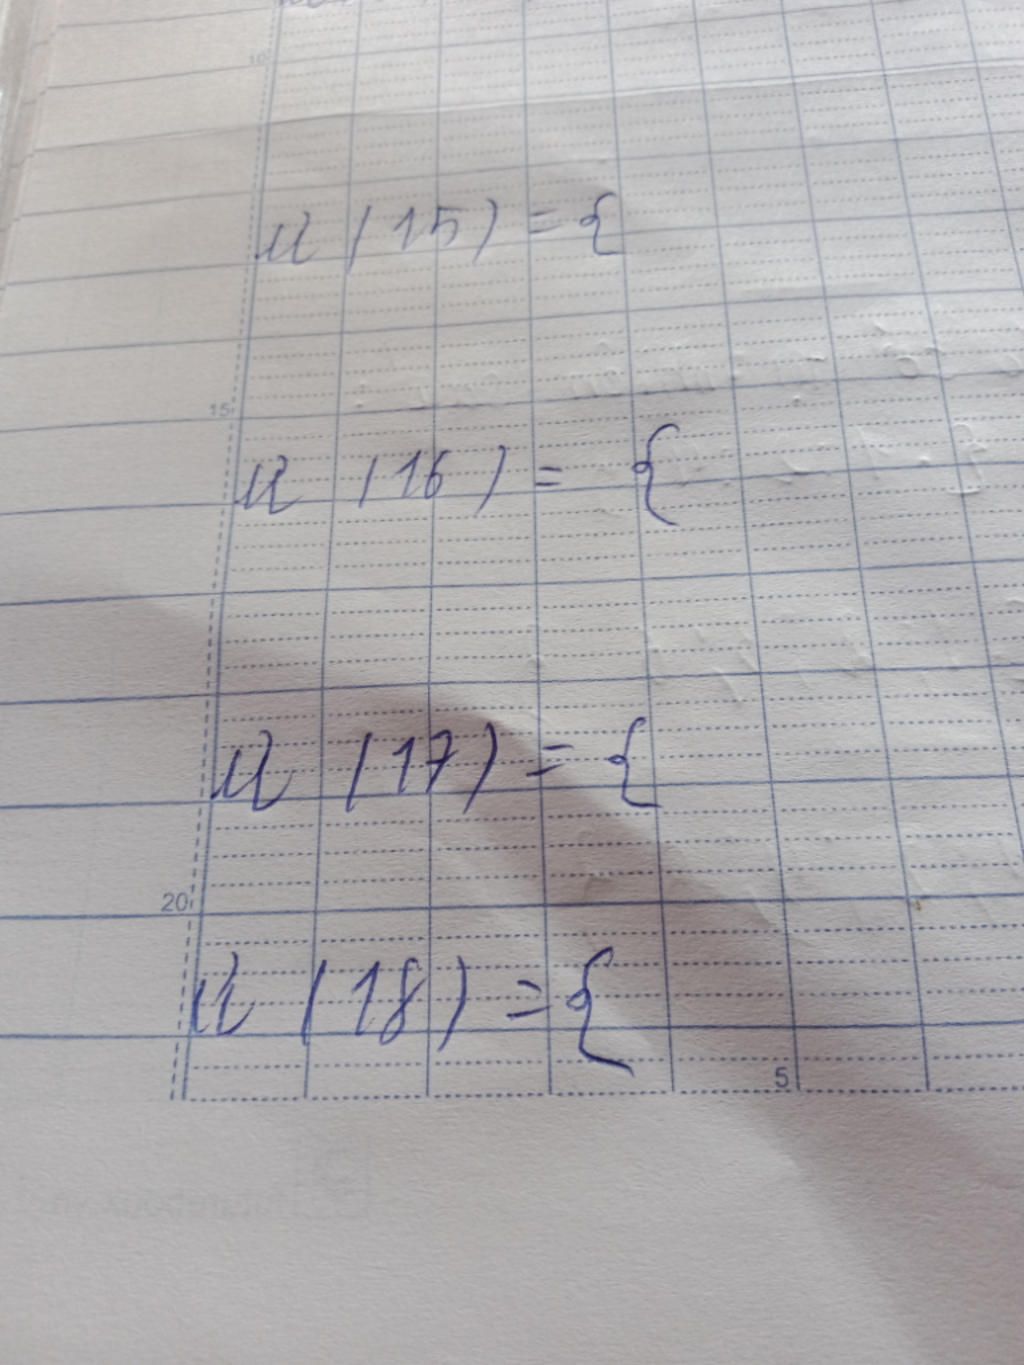 10
u (15) = {
15
u (16) = {
u (17) = {
20
u (18) = {
5